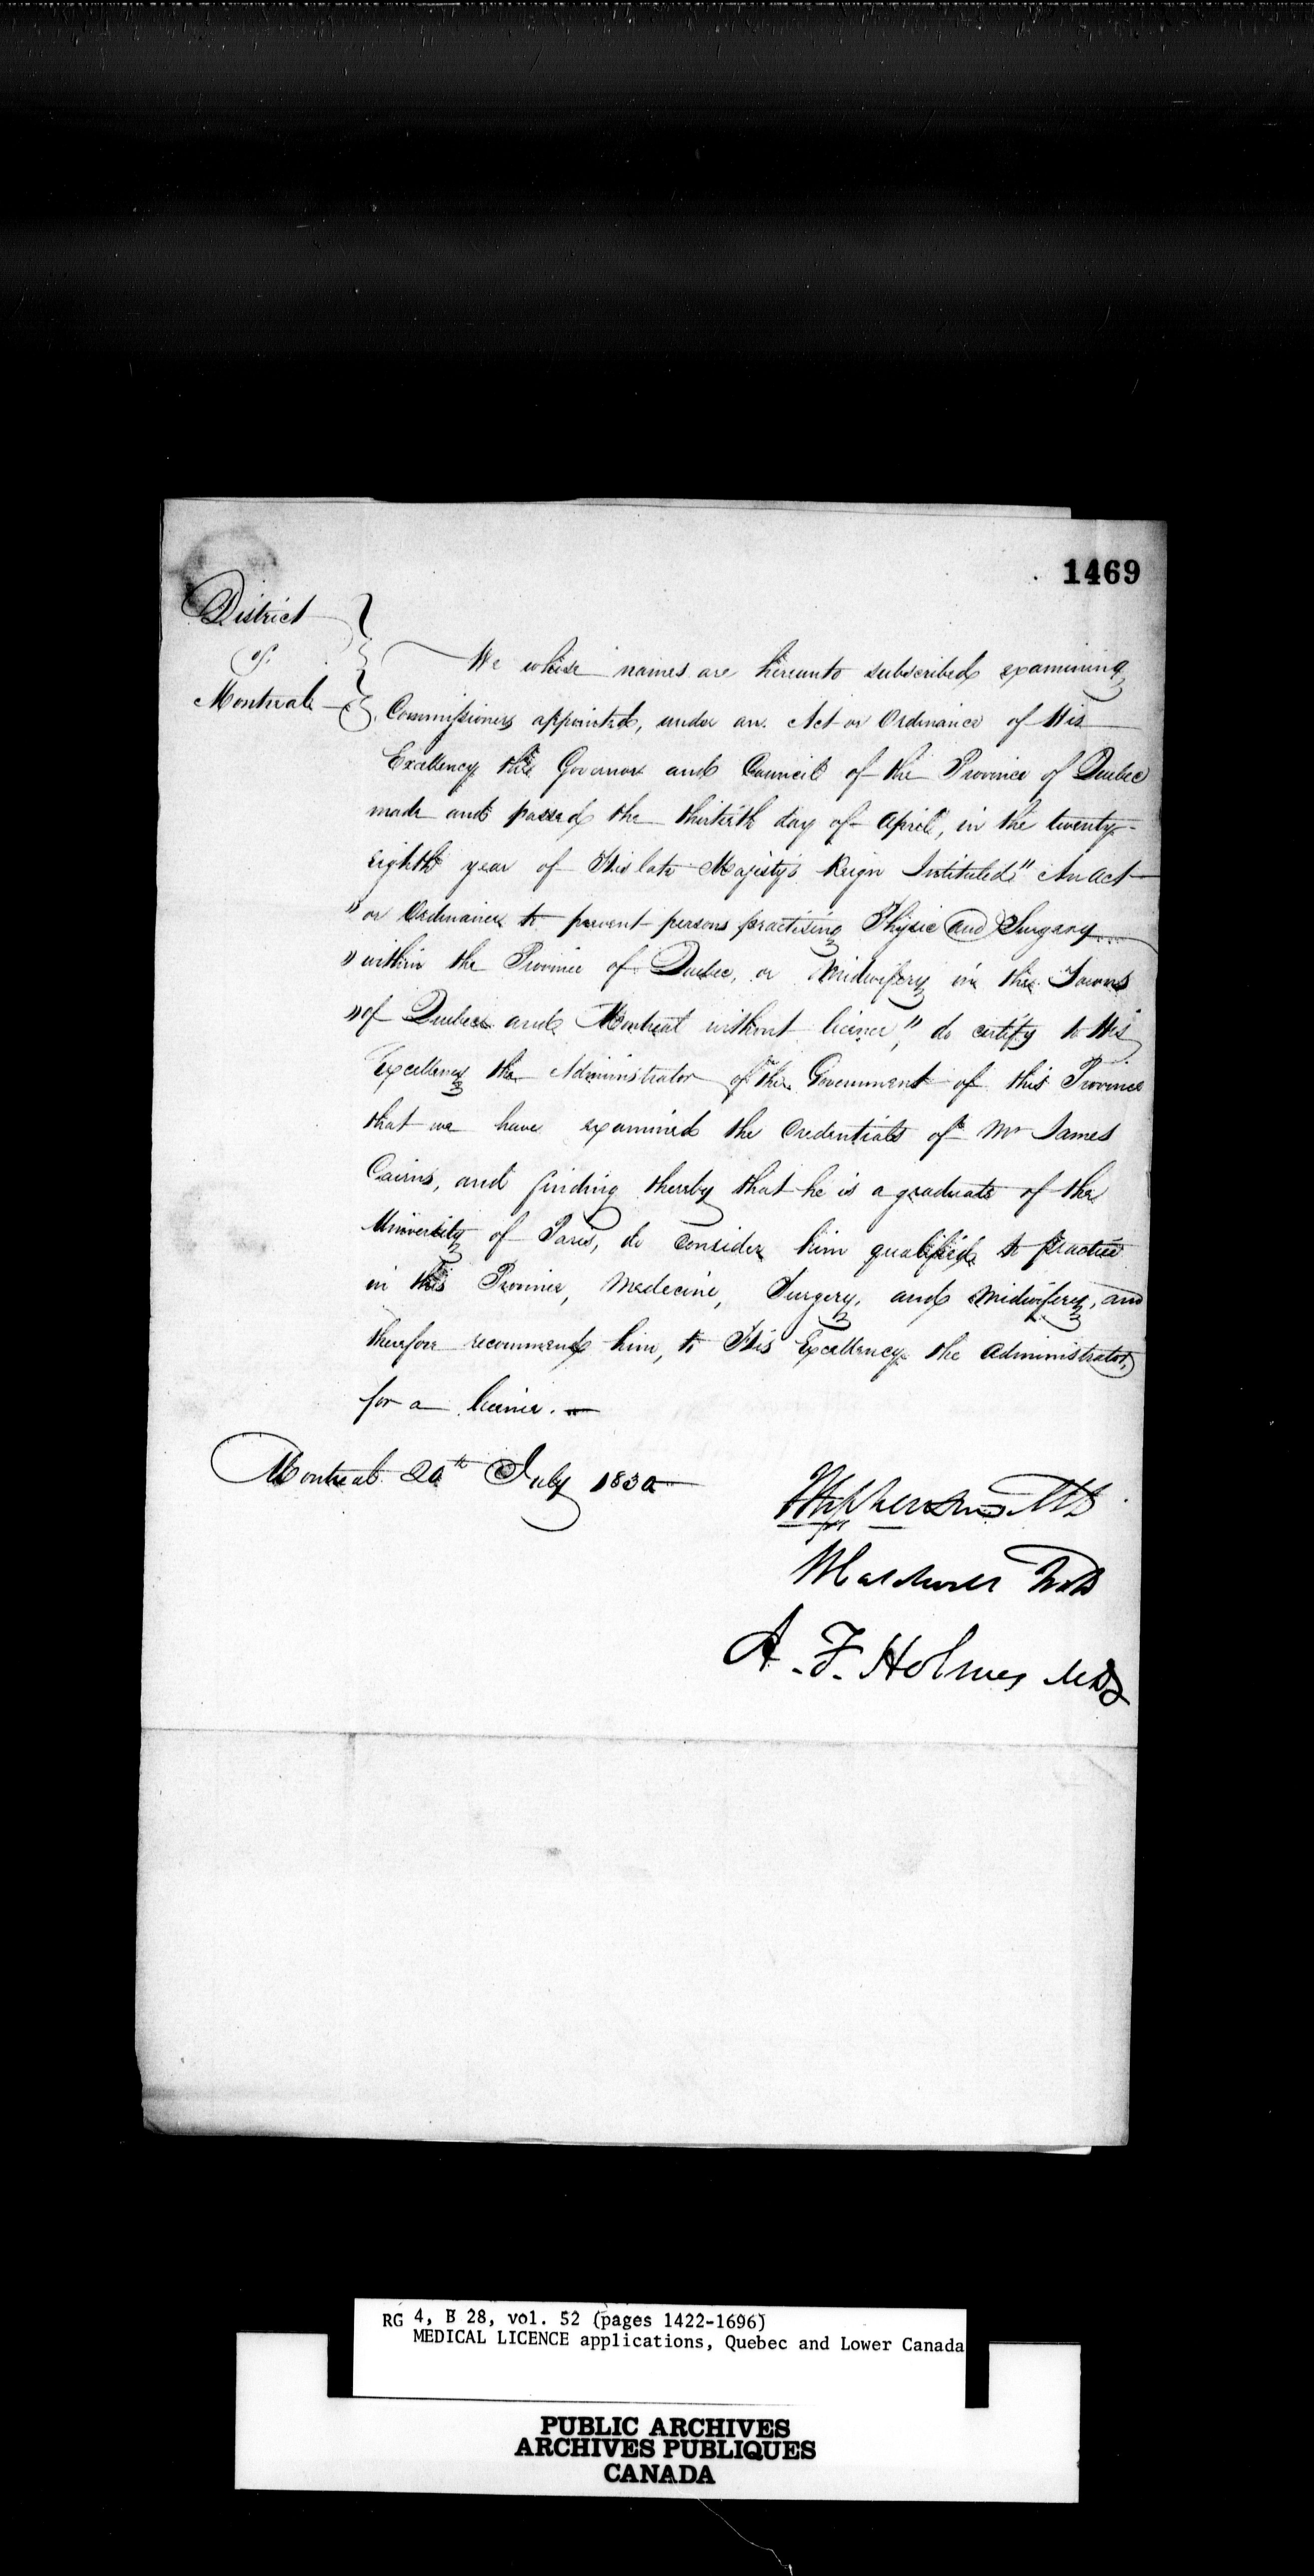 1469
District
of
Montreal
We whose names are hereunto subscribed examining
Commissioners appointed, under an Act or Ordinance of His
Excellency the Governor and Council of the Province of Quebec
made and passed the thirtieth day of April, in the twenty-
eighth year of His late Majesty's Reign Intituled "An Act
" or Ordinance to prevent persons practising Physic and Surgery
" within the Province of Quebec, or Midwifery in the Towns
" of Quebec and Montreal without licence", do certify to His
Excellency the Administrator of the Government of this Province
that we have examined the Credentials of Mr James
Cairns, and finding thereby that he is a graduate of the
University of Paris, do consider him qualified to practice
in this Province, Medecine, Surgery, and Midwifery, and
therefore recommend him, to His Excellency the Administrator,
for a licence.
Montreal 20th July 1830
Stephenson MD
MD
A. F. Holmes MD
RG 4, B 28, vol. 52 (pages 1422-1696)
MEDICAL LICENCE applications, Quebec and Lower Canada
PUBLIC ARCHIVES
ARCHIVES PUBLIQUES
CANADA